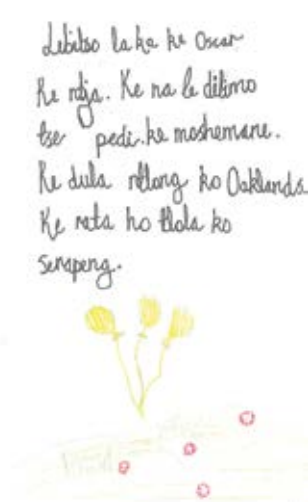 Lebitso laka ke Oscar
Ke ntja. Ke na le dilimo
tse pedi. ke moshemane.
Ke dula ntlong ko Oaklands.
Ke rata ho tlola ko
serapeng.